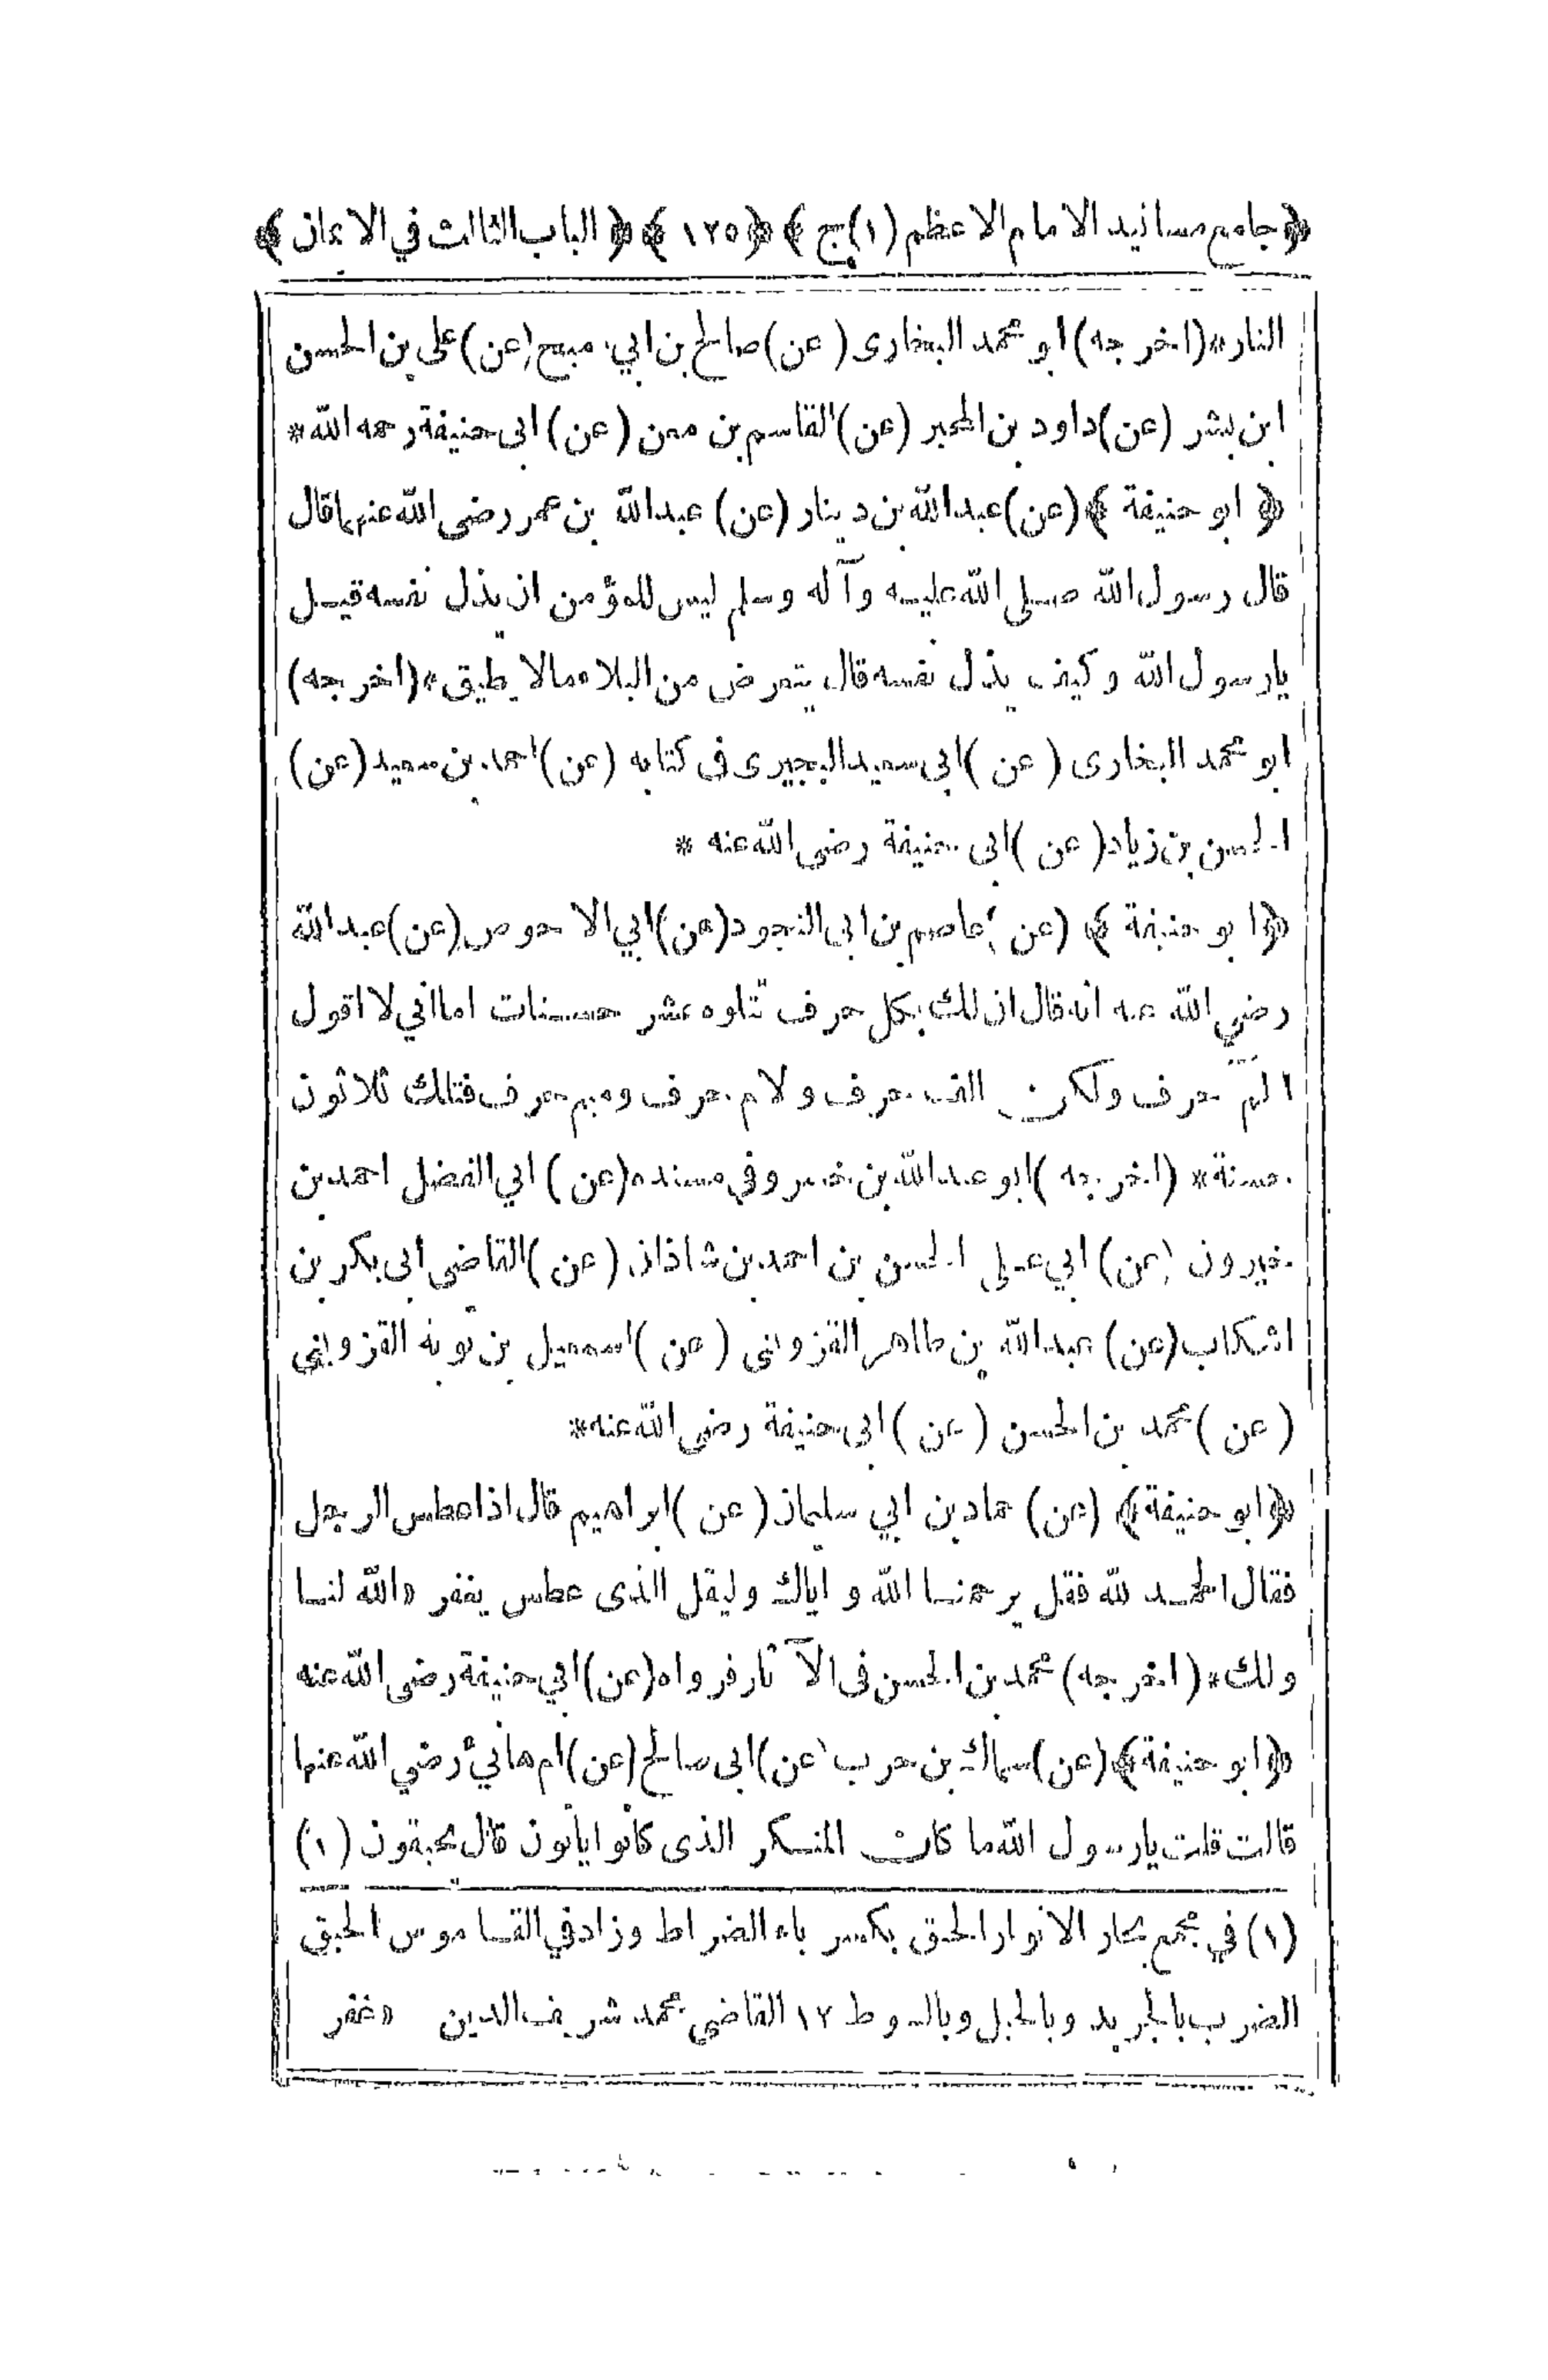 ﴿جامع مسانيد الامام الاعظم (١) ج﴾ ﴿١٢٥﴾ ﴿الباب الثالث في الايمان﴾
النار*(اخرجه) ابو محمد البخارى (عن) صالح بن ابي (عن) على بن الحسن
ابن بشر (عن) داود بن المحبر (عن) القاسم بن معن (عن) ابى حنيفة رحمه الله*
﴿ابو حنيفة﴾ (عن) عبدالله بن دينار (عن) عبدالله بن عمر رضى الله عنهما قال
قال رسول الله صلى الله عليه وآله وسلم ليس للمؤمن ان يذل نفسه قيل
يارسول الله وكيف يذل نفسه قال يتعرض من البلاء مالا يطيق*(اخرجه)
ابو محمد البخارى (عن) ابى سعيد البجيرى فى كتابه (عن) احمد بن سعيد (عن)
الحسن بن زياد (عن) ابى حنيفة رضى الله عنه *
﴿ابو حنيفة﴾ (عن) عاصم بن ابى النجود (عن) ابي الاحوص (عن) عبدالله
رضي الله عنه انه قال ان لك بكل حرف تتلوه عشر حسنات اما اني لا اقول
الم حرف ولكن الف حرف ولام حرف وميم حرف فتلك ثلاثون
حسنة* (اخرجه) ابو عبدالله بن خسرو في مسنده (عن) ابي الفضل احمد بن
خيرون (عن) ابي على الحسن بن احمد بن شاذان (عن) القاضى ابى بكر بن
اشكاب (عن) عبدالله بن طاهر القزوينى (عن) اسمعيل بن توبة القزويني
(عن) محمد بن الحسن (عن) ابى حنيفة رضى الله عنه*
﴿ابو حنيفة﴾ (عن) حماد بن ابي سليمان (عن) ابراهيم قال اذا عطس الرجل
فقال الحمد لله فقل يرحمنا الله واياك وليقل الذى عطس يغفر الله لنا
ولك*(اخرجه) محمد بن الحسن فى الآثار فرواه (عن) ابي حنيفة رضى الله عنه
﴿ابو حنيفة﴾ (عن) سماك بن حرب (عن) ابى صالح (عن) ام هانئ رضي الله عنها
قالت قلت يارسول الله ما كان المنكر الذى كانوا يأتون قال يحبقون (١)
(١) في مجمع بحار الانوار الحبق بكسر باء الضراط وزاد في القاموس الحبق
الضرب بالجريد وبالحبل وبالسوط ١٢ القاضي محمد شريف الدين غفر